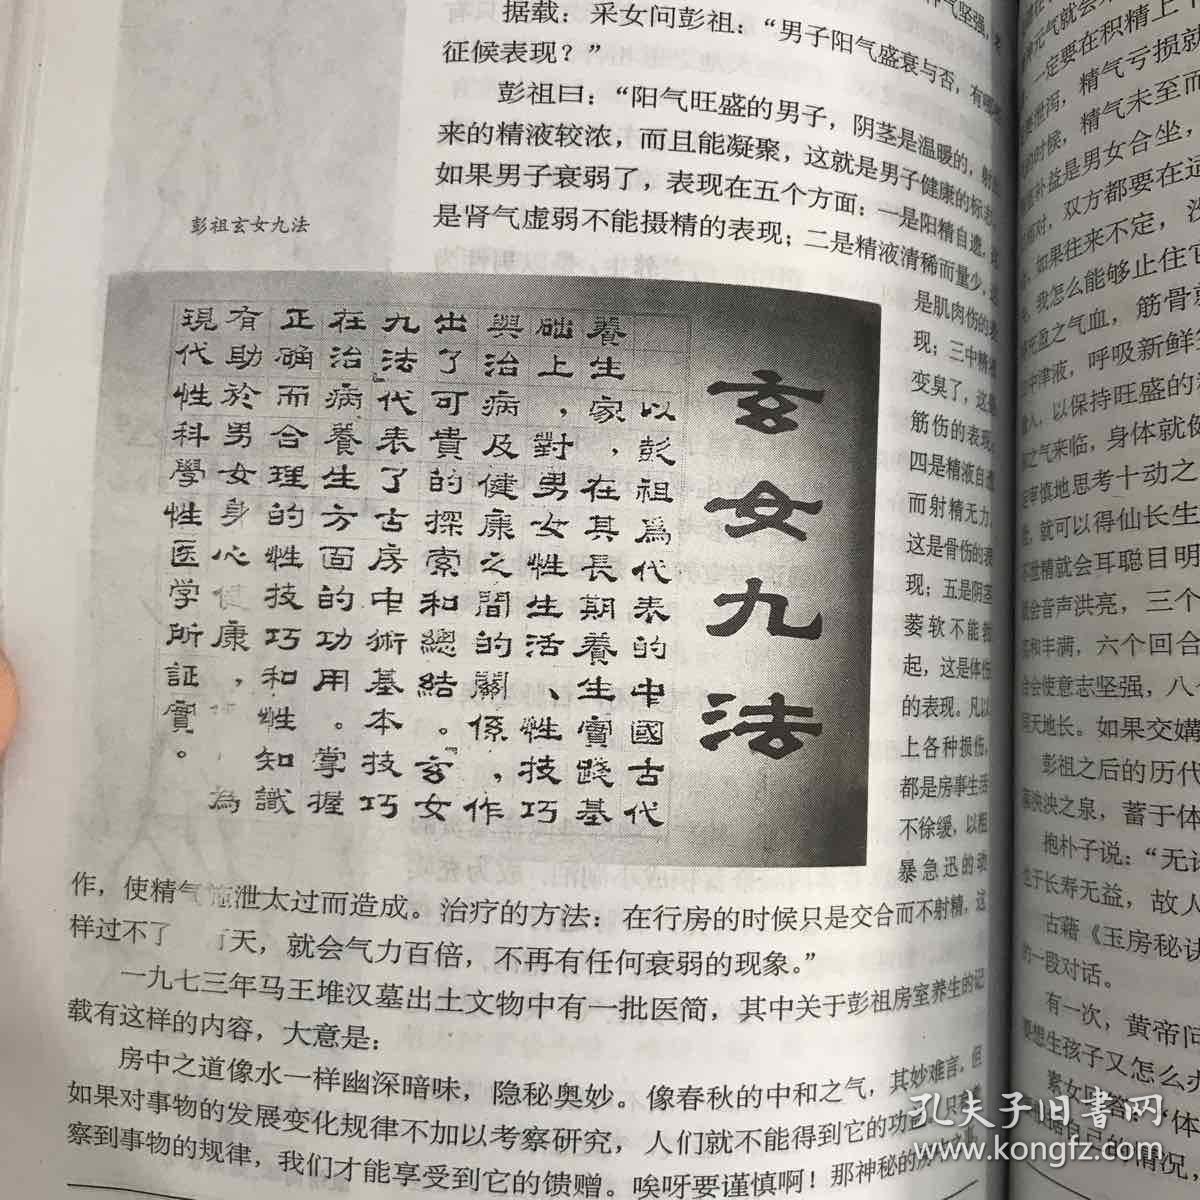 据载：采女问彭祖：“男子阳气盛衰与否，有哪
征候表现？”
彭祖曰：“阳气旺盛的男子，阴茎是温暖的，射
来的精液较浓，而且能凝聚，这就是男子健康的标志
如果男子衰弱了，表现在五个方面：一是阳精自遗，
是肾气虚弱不能摄精的表现；二是精液清稀而量少，
是肌肉伤的表
现；三中精液
变臭了，这是
筋伤的表现
四是精液自遗
而射精无力，
这是骨伤的表
现；五是阴茎
萎软不能勃
起，这是体伤
的表现。凡以
上各种损伤，
都是房事生活
不徐缓，以粗
暴急迅的动
彭祖玄女九法
玄女九法
以彭祖爲代表的中國古代
養生家，在其長期養生實踐基
础上，對男女性生活、性技巧
與治病及健康之間的關係，作
出了可貴的探索和總結。『玄女
九法』代表了古房中術基本技巧
在治病養生方面的功用。掌握
正确而合理的性技巧和性知識
有助於男女身心健康，為
現代性科學性医学所証實。
作，使精气施泄太过而造成。治疗的方法：在行房的时候只是交合而不射精，这
样过不了 天，就会气力百倍，不再有任何衰弱的现象。”
一九七三年马王堆汉墓出土文物中有一批医简，其中关于彭祖房室养生的记
载有这样的内容，大意是：
房中之道像水一样幽深暗味，隐秘奥妙。像春秋的中和之气，其妙难言。但
如果对事物的发展变化规律不加以考察研究，人们就不能得到它的功
察到事物的规律，我们才能享受到它的馈赠。唉呀要谨慎啊！那神秘的房
元气就会
一定要在积精上
泄泻，精气亏损就
时候，精气未至而
补益是男女合坐，
相对，双方都要在
如果往来不定，
我怎么能够止住它
充盈之气血，筋骨
中津液，呼吸新鲜
以保持旺盛的
之气来临，身体就
审慎地思考十动之
就可以得仙长生
泄精就会耳聪目明
会音声洪亮，三个
和丰满，六个回合
会使意志坚强，八
天地长。如果交媾
彭祖之后的历代
泱泱之泉，蓄于体
抱朴子说：“无
于长寿无益，故人
古籍《玉房秘诀
的一段对话。
有一次，黄帝问
要想生孩子又怎么
素女回答：“体
自己的情况，
孔夫子旧书网
www.kongfz.com